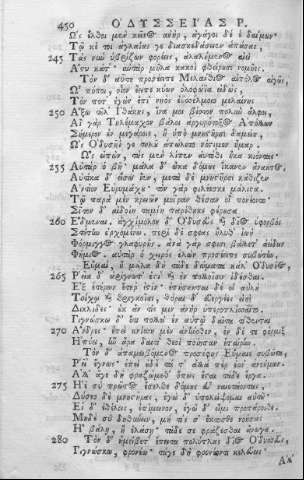 450 ΟΔΥΣΣΕΙΑΣ Ρ.
Ὡς ἔλθοι μὲν κεῖνος ἀνὴρ, ἀγάγοι δέ ἑ δαίμων·
Τῷ κέ τοι ἀγλαΐας γε διασκεδάσειεν ἁπάσας,
245 Τὰς νῦν ὑβρίζων φορέεις, ἀλαλήμενος αἰεὶ
Ἄστυ κάτ᾽· αὐτὰρ μῆλα κακοὶ φθείρουσι νομῆες.
Τὸν δ᾽ αὖτε προσέειπε Μελάνθιος αἰπόλος αἰγῶν,
Ὢ πόποι, οἷον ἔειπε κύων ὀλοφώϊα εἰδὼς,
Τόν ποτ᾽ ἐγὼν ἐπὶ νηὸς ἐϋσσέλμοιο μελαίνης
250 Ἄξω τῆλ᾽ Ἰθάκης, ἵνα μοι βίοτον πολὺν ἄλφοι.
Αἲ γὰρ Τηλέμαχον βάλοι ἀργυρότοξος Ἀπόλλων
Σήμερον ἐν μεγάροις, ἢ ὑπὸ μνηστῆρσι δαμείη,
Ὡς Ὀδυσῆΐ γε τηλοῦ ἀπώλετο νόστιμον ἦμαρ.
Ὣς εἰπὼν, τοὺς μὲν λίπεν αὐτόθι ἦκα κιόντας·
255 Αὐτὰρ ὁ βῆ· μάλα δ᾽ ὦκα δόμους ἵκανεν ἄνακτος.
Αὐτίκα δ᾽ εἴσω ἴεν, μετὰ δὲ μνηστῆρσι κάθιζεν
Ἀντίον Εὐρυμάχου· τὸν γὰρ φιλέεσκε μάλιστα.
Τῷ πάρα μὲν κρειῶν μοῖραν θέσαν οἳ πονέοντο·
Σῖτον δ᾽ αἰδοίη ταμίη παρέθηκε φέρουσα
260 Ἔδμεναι. ἀγχίμολον δ᾽ Ὀδυσεὺς καὶ δῖος ὑφορβὸς
Στήτην ἐρχομένω. περὶ δέ σφεας ἤλυθ᾽ ἰωὴ
Φόρμιγγος γλαφυρῆς. ἀνὰ γάρ σφισι βάλλετ᾽ ἀείδειν
Φήμιος. αὐτὰρ ὁ χειρὸς ἑλὼν προσέειπε συβώτην,
Εὔμαι᾽, ἦ μάλα δὴ τάδε δώματα κάλ᾽ Ὀδυσῆος,
265 Ῥεῖα δ᾽ ἀρίγνωτ᾽ ἐστὶ καὶ ἐν πολλοῖσιν ἰδέσθαι.
Ἐξ ἑτέρων ἕτερ᾽ ἐστίν· ἐπήσκηται δέ οἱ αὐλὴ
Τοίχῳ καὶ θριγκοῖσι, θύραι δ᾽ εὐεργέες εἰσὶ
Δικλίδες· οὐκ ἄν τίς μιν ἀνὴρ ὑπεροπλίσσαιτο.
Γιγνώσκω δ᾽ ὅτι πολλοὶ ἐν αὐτῷ δαῖτα τίθενται
270 Ἄνδρες· ἐπεὶ κνίσση μὲν ἀνήνοθεν, ἐν δέ τε φόρμιγξ
Ἠπύει, ἣν ἄρα δαιτὶ θεοὶ ποίησαν ἑταίρην.
Τὸν δ᾽ ἀπαμειβόμενος προσέφης Εὔμαιε συβῶτα,
Ῥεῖ᾽ ἔγνως· ἐπεὶ οὐδὲ τά τ᾽ ἄλλα πέρ ἐσσ᾽ ἀνοήμων.
Ἀλλ᾽ ἄγε δὴ φραζώμεθ᾽ ὅπως ἔσται τάδε ἔργα.
275 Ἠὲ σὺ πρῶτος ἔσελθε δόμους εὖ ναιετάοντας,
Δύσεο δὲ μνηστῆρας, ἐγὼ δ᾽ ὑπολείψομαι αὐτοῦ·
Εἰ δ᾽ ἐθέλεις, ἐπίμεινον, ἐγὼ δ᾽ εἶμι προπάροιθε.
Μηδὲ σὺ δηθύνειν, μή τίς σ᾽ ἔκτοσθε νοήσας
Ἢ βάλῃ, ἢ ἐλάσῃ· τάδε σε φράζεσθαι ἄνωγα.
280 Τὸν δ᾽ ἠμείβετ᾽ ἔπειτα πολύτλας δῖος Ὀδυσσεὺς,
Γιγνώσκω, φρονέω· τάγε δὴ νοέοντι κελεύεις.
Ἀλλ᾽